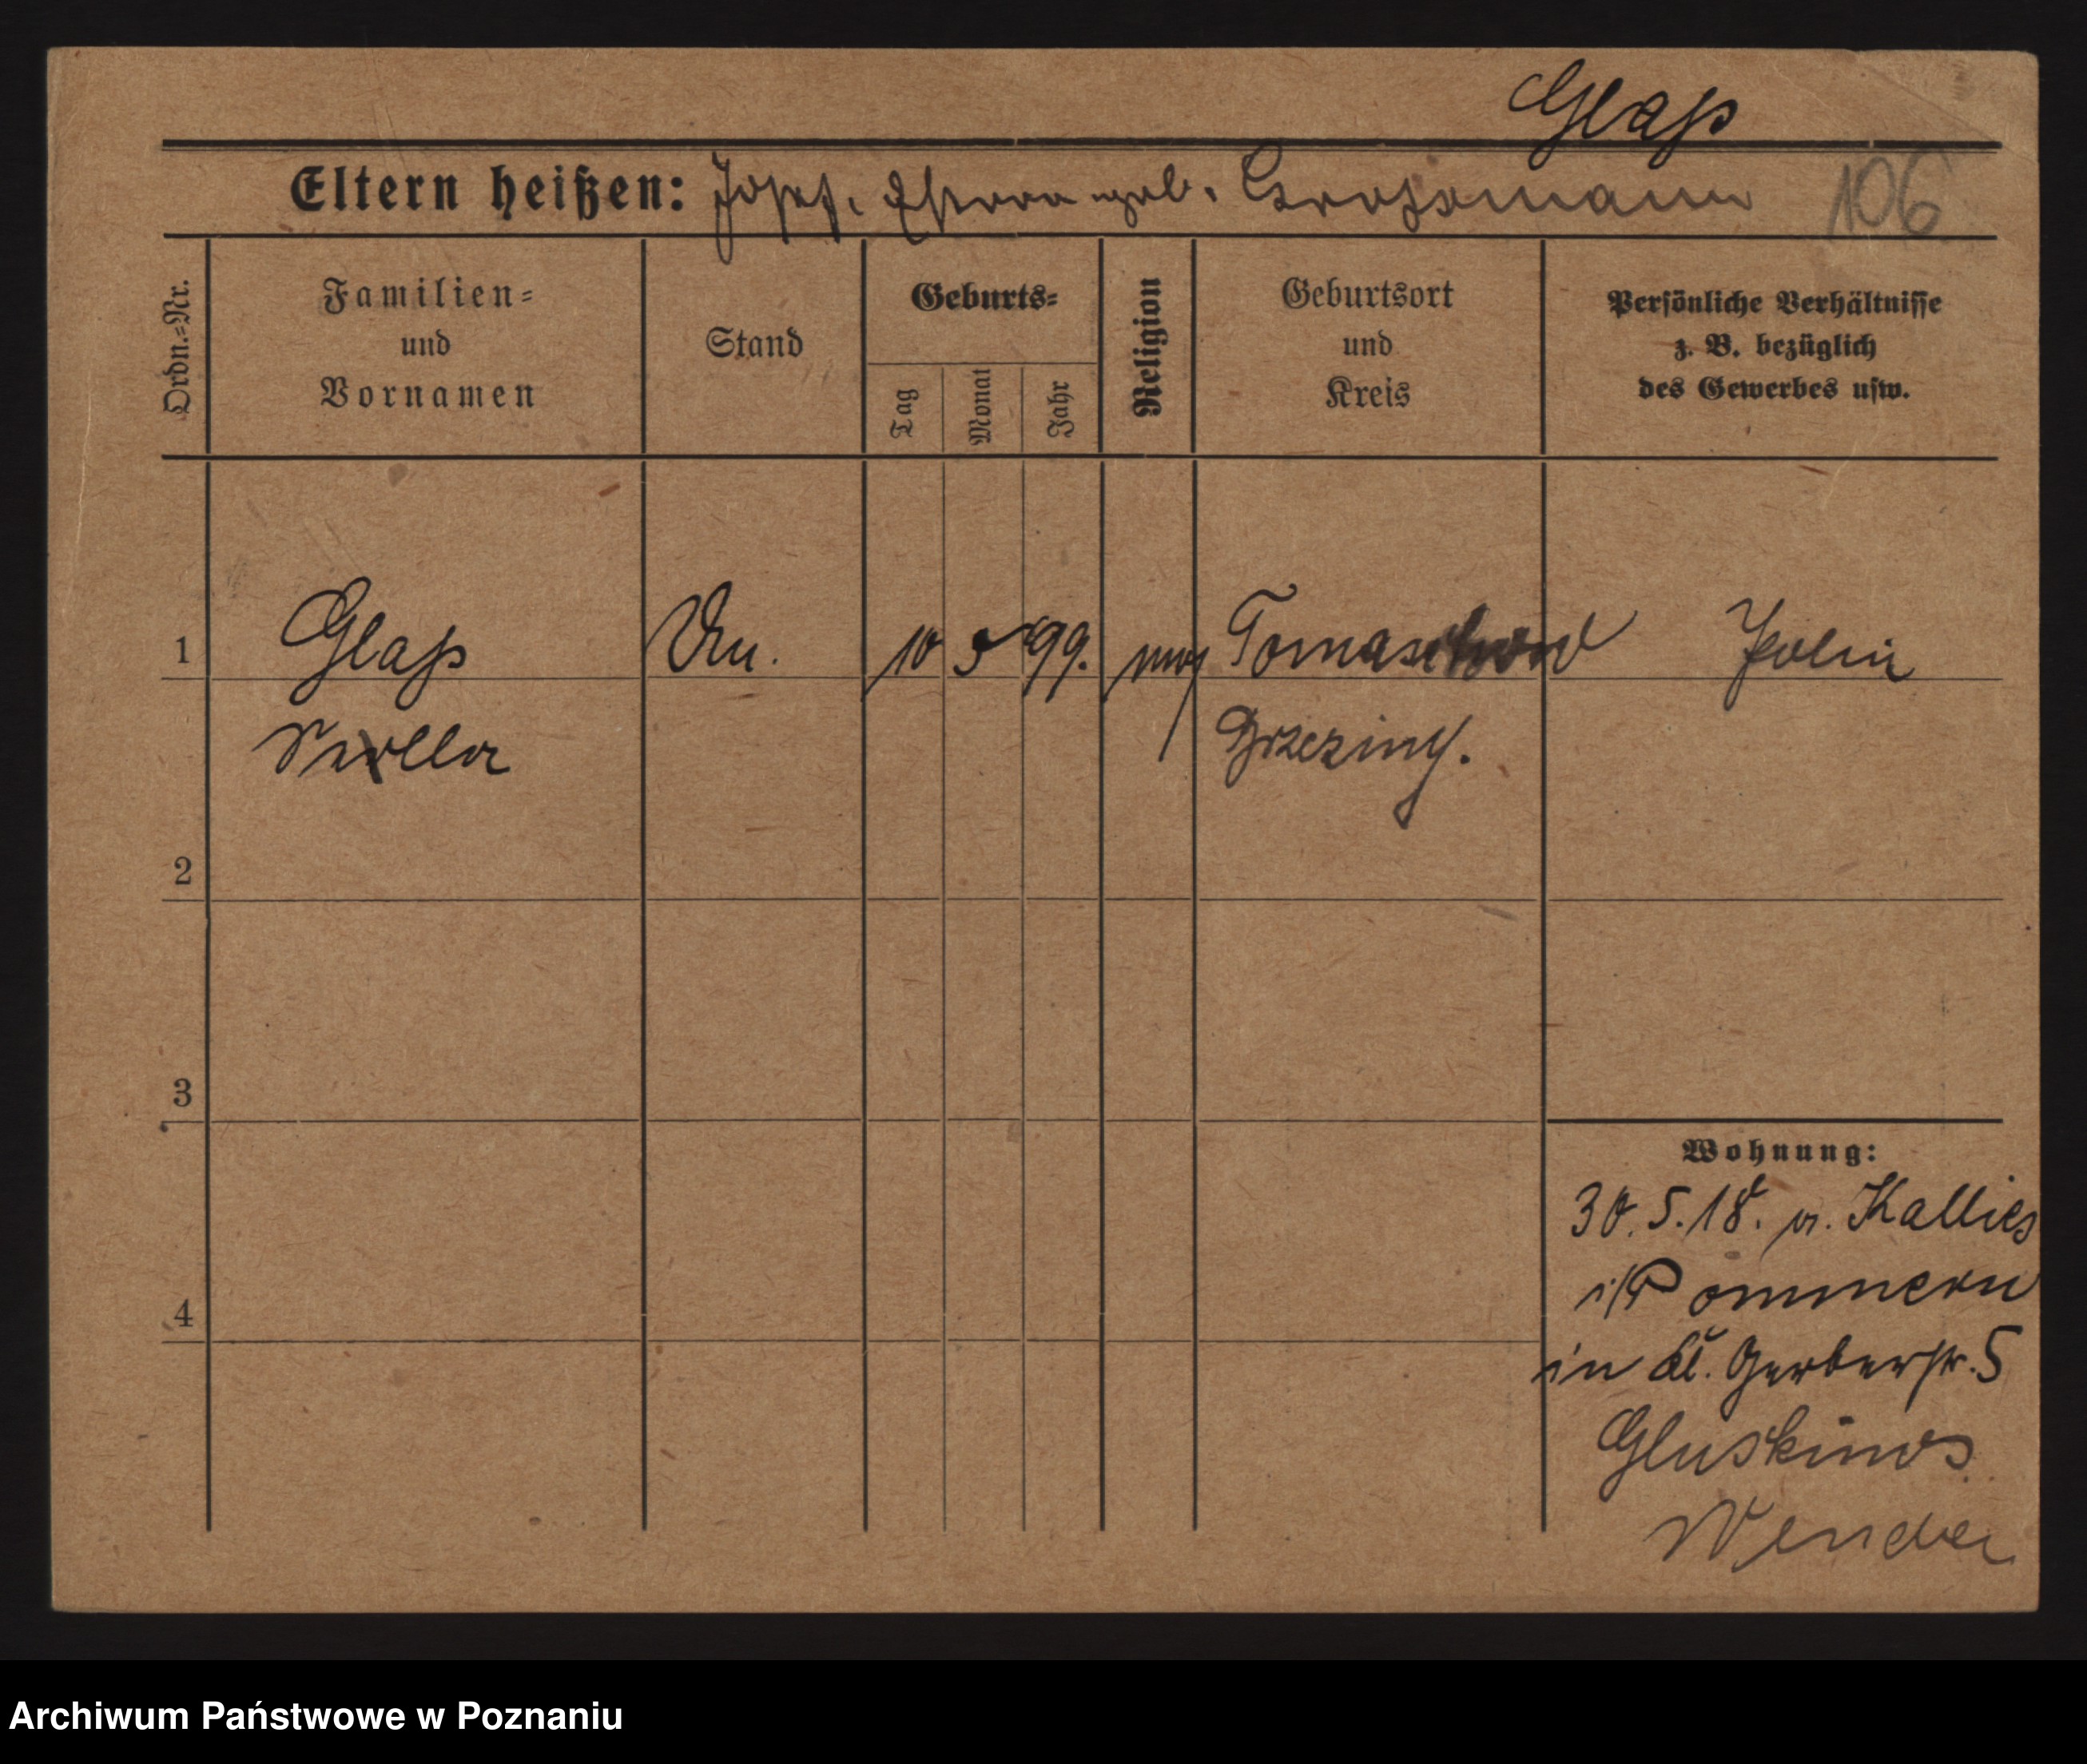 Glaß
Eltern heißen: Josef, geb. Grossmann 106
Ordn.-Nr.
Familien-
und
Vornamen
Stand
Geburts-
Tag
Monat
Jahr
Religion
Geburtsort
und
Kreis
Persönliche Verhältnisse
z. B. bezüglich
des Gewerbes usw.
1 Glaß 10 5 99. mos Tomaschow Polin
Brzeziny.
2
3
4
Wohnung:
30.5.18. v. Kallies
i/Pommern
in Kl. Gerberstr. 5
Gluskinos
Archiwum Państwowe w Poznaniu